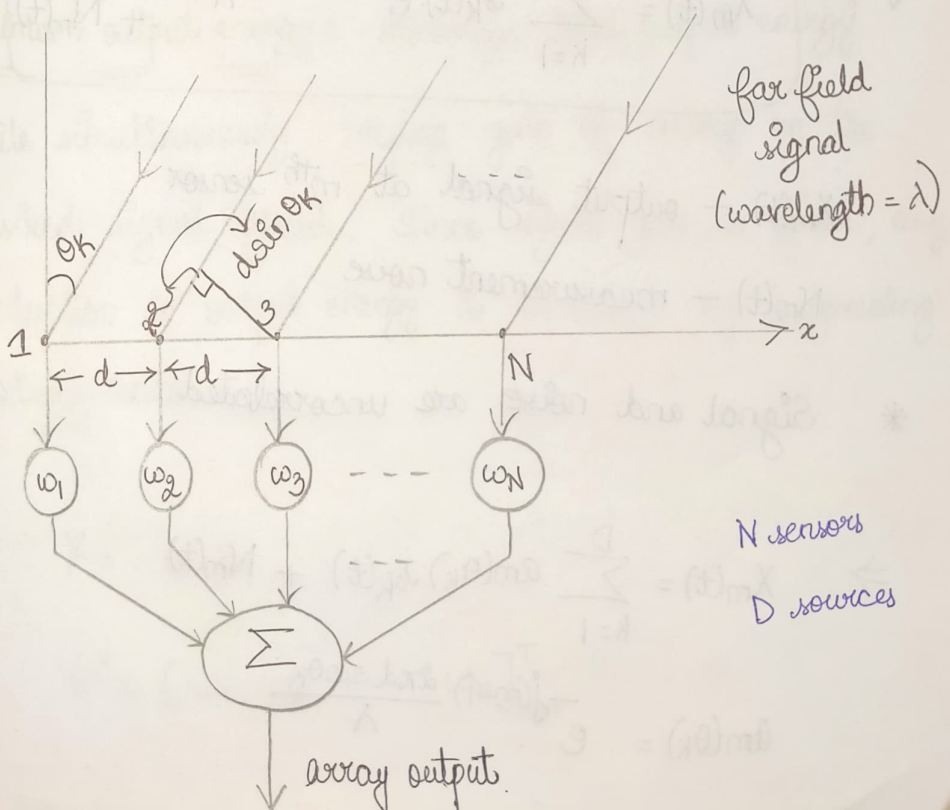 far field
signal
(wavelength = λ)
θk
d sin θk
1
2
3
N
x
d
d
ω1
ω2
ω3
ωN
N sensors
D sources
Σ
array output